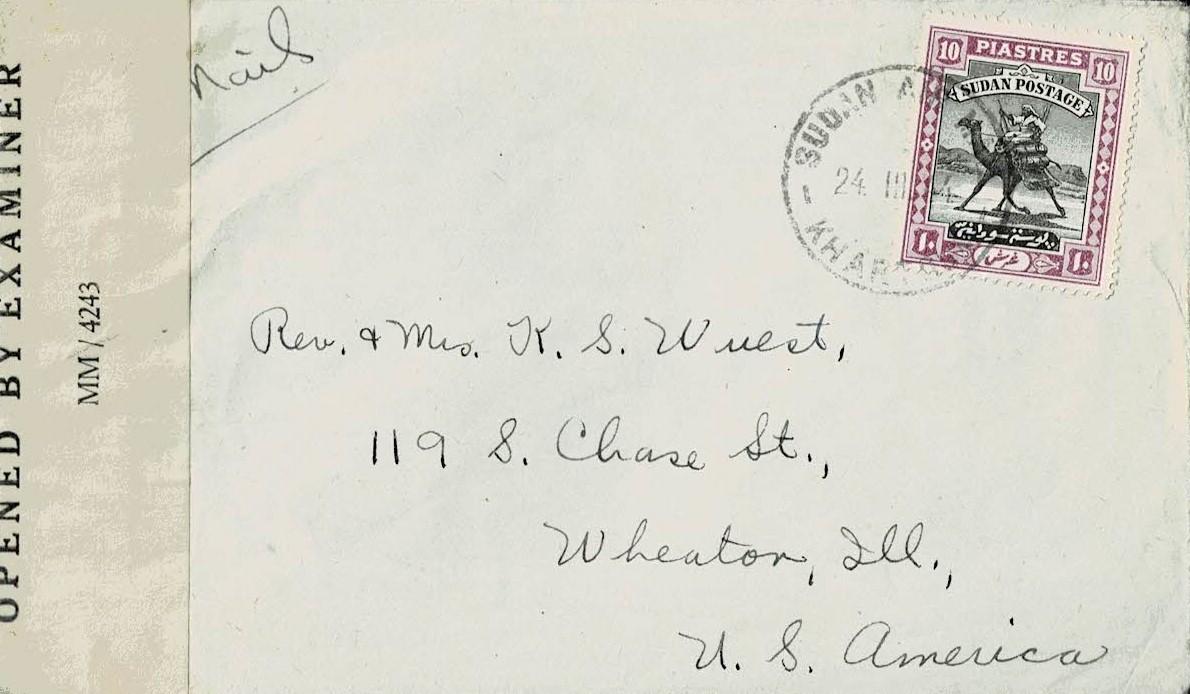 OPENED BY EXAMINER
MM / 4243
Mail
10 PIASTRES 10
SUDAN POSTAGE
١٠ غرش ١٠
SUDAN
24 III
Rev. & Mrs. K. S. Wuest,
119 S. Chase St.,
Wheaton, Ill.,
U. S. America